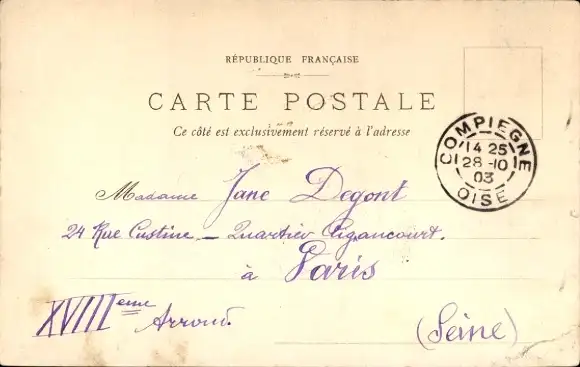 RÉPUBLIQUE FRANÇAISE
CARTE POSTALE
Ce côté est exclusivement réservé à l'adresse
COMPIEGNE
14 25
28-10
03
OISE
Madame Jane Degont
24 Rue Custine - Quartier Cigancourt.
à Paris
XVIIIeme Arrond.
(Seine)